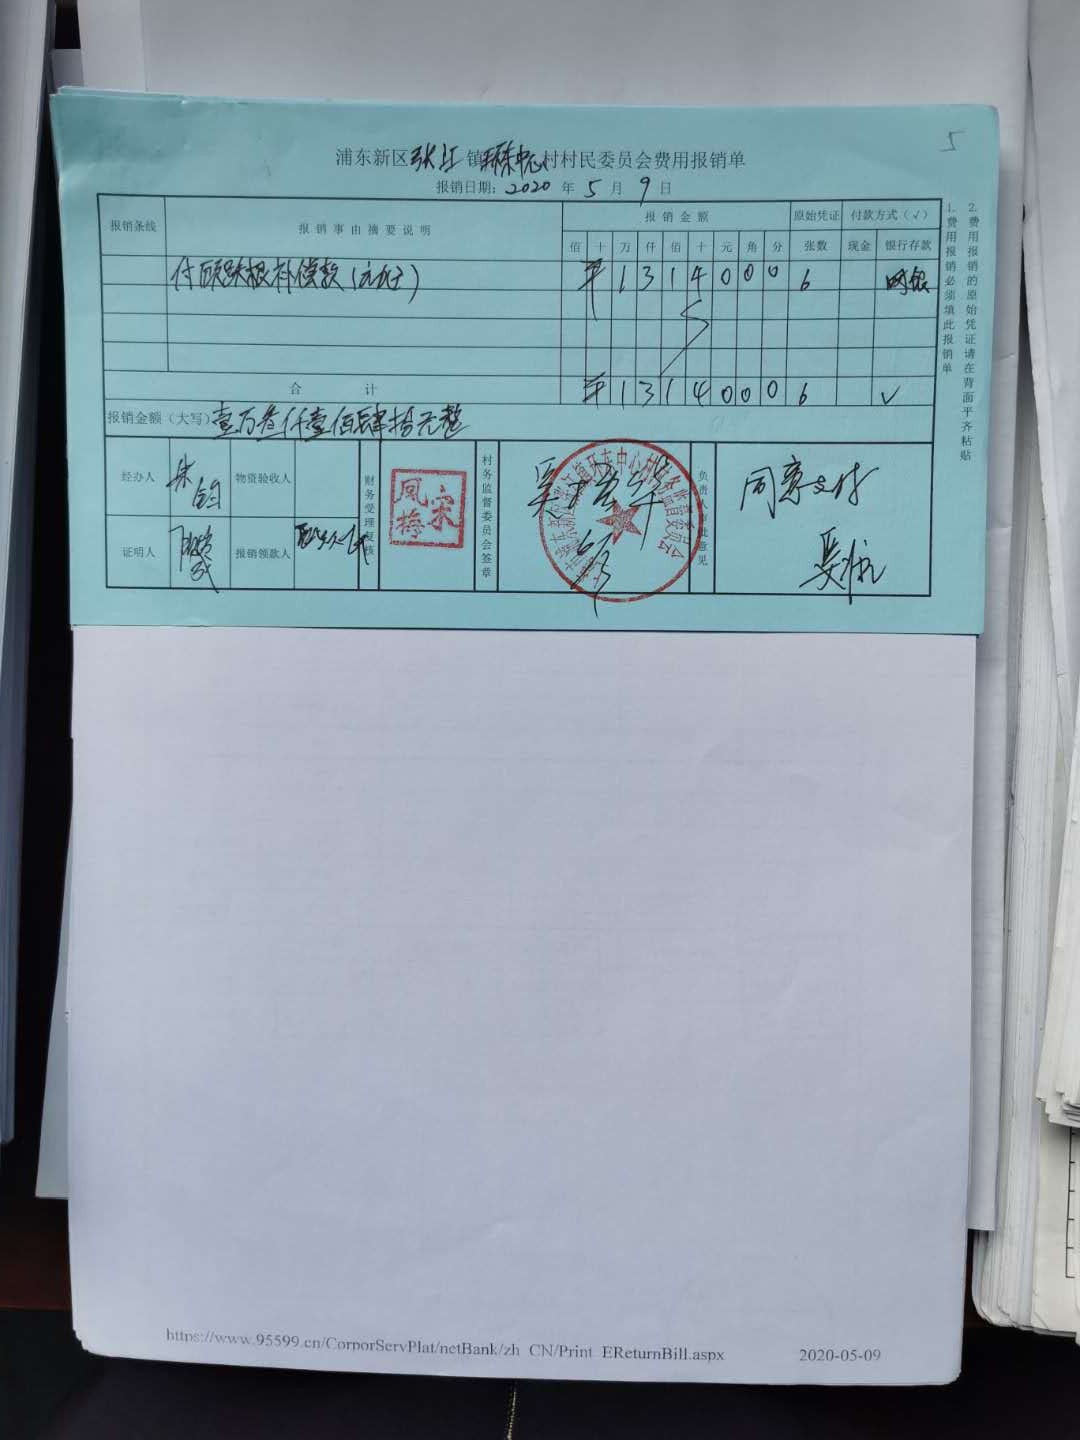 5
浦东新区张江镇环东中心村村民委员会费用报销单
报销日期：2020年5月9日
报销条线 报销事由摘要说明 报销金额 原始凭证 付款方式（√）
佰 十 万 仟 佰 十 元 角 分 张数 现金 银行存款
付 补偿款 ¥ 1 3 1 4 0 0 0 6 网银
合计 ¥ 1 3 1 4 0 0 0 6 √
报销金额（大写）壹万叁仟壹佰肆拾元整
经办人 朱 物资验收人 财务受理复核 宋凤梅 村务监督委员会签章 负责人审批意见 同意支付
证明人 报销领款人
1.费用报销必须填此报销单
2.费用报销的原始凭证请在背面平齐粘贴
https://www.95599.cn/CorporServPlat/netBank/zh_CN/Print_EReturnBill.aspx 2020-05-09